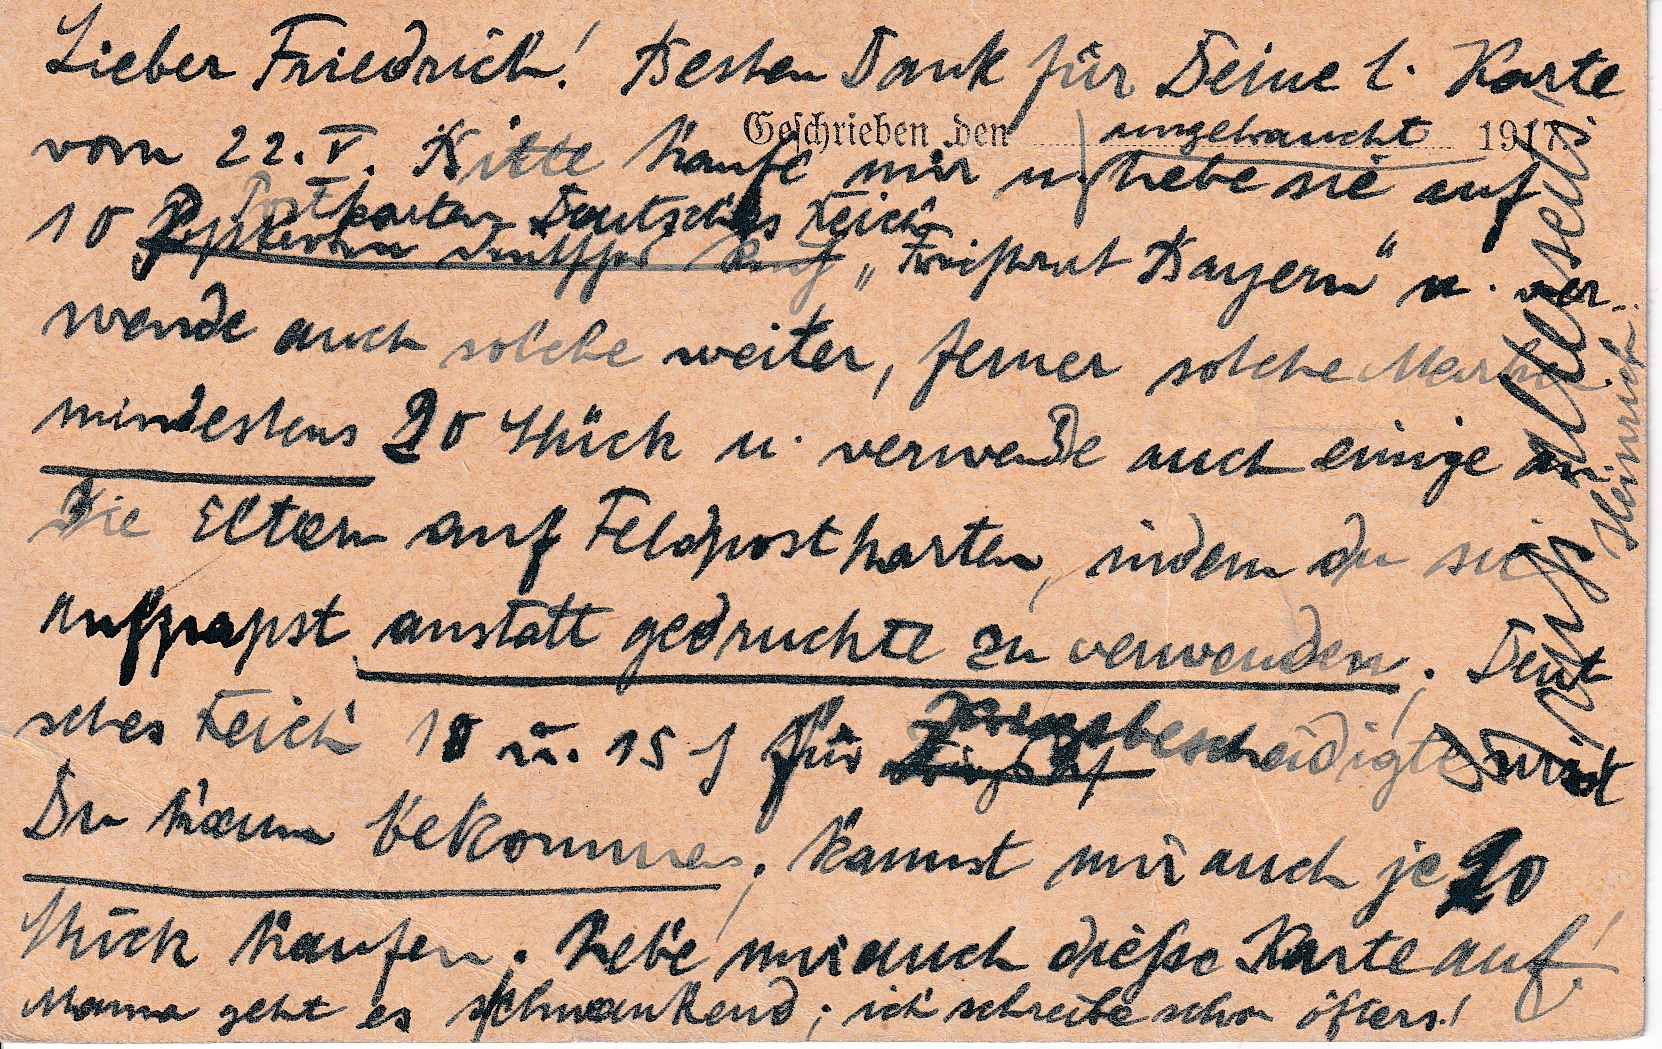 Lieber Friedrich! Besten Dank für Deine l. Karte
Geschrieben den ungebraucht 1917
vom 22. V. Bitte kaufe mir u. hebe sie auf
Postkarten Deutsches Reich
10 „Freistaat Bayern“ u. ver-
wende auch solche weiter, ferner solche Marken
mindestens 20 Stück u. verwende auch einige an
Die Eltern auf Feldpostkarten, indem du sie
aufpapst anstatt gedruckte zu verwenden. Deut
sches Reich 10 u. 15 für Kriegsbeschädigte wirst
Du kaum bekommen; kannst mir auch je 20
Stück kaufen. Hebe mir auch diese Karte auf!
Mama geht es schwankend; ich schreibe schon öfters!
allerseits
Heinrich